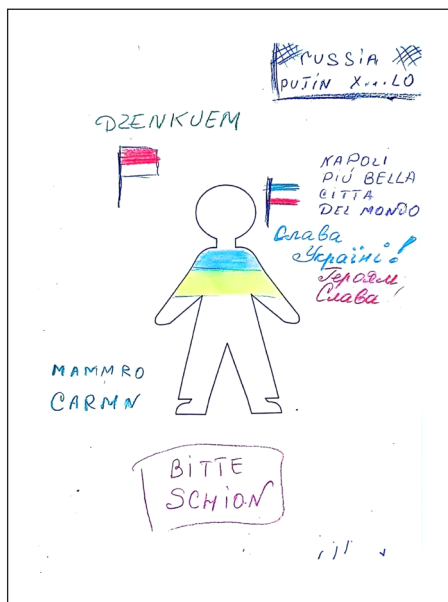 RUSSIA
PUTIN X....LO
DZENKUEM
NAPOLI
PIÙ BELLA
CITTA
DEL MONDO
Слава
Україні!
Героям
Слава!
MAMMRO
CARMN
BITTE
SCHION